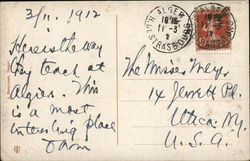 3/11. 1912
Here is the way
they teach at
Algiers. This
is a most
interesting place
The Misses Meyer
14 Jewett Pl.
Utica. N.Y.
U.S.A.
ALGER
11-3
STRASBOURG